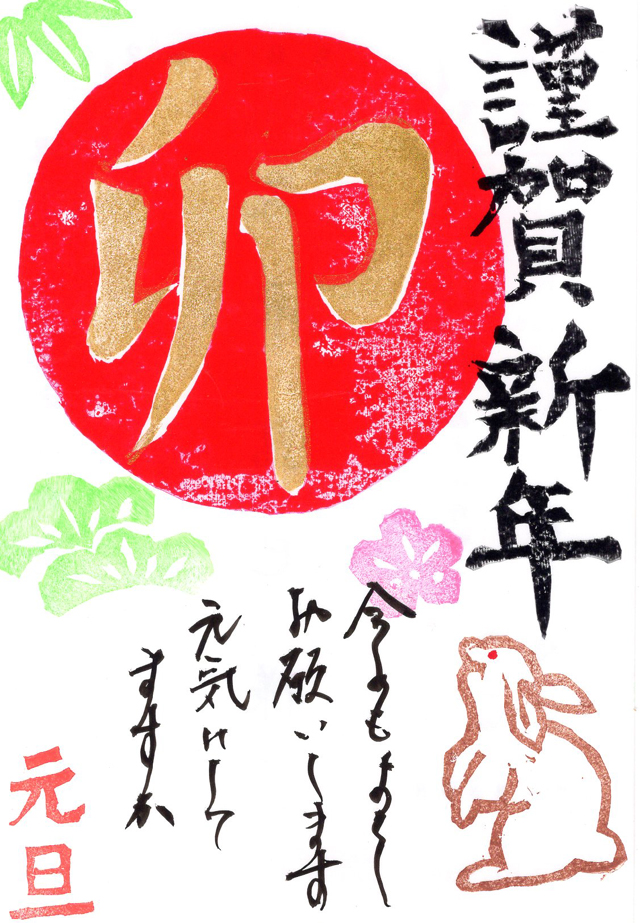 謹賀新年
卯
今年もよろしく
お願いします
元気にして
ますか
元旦